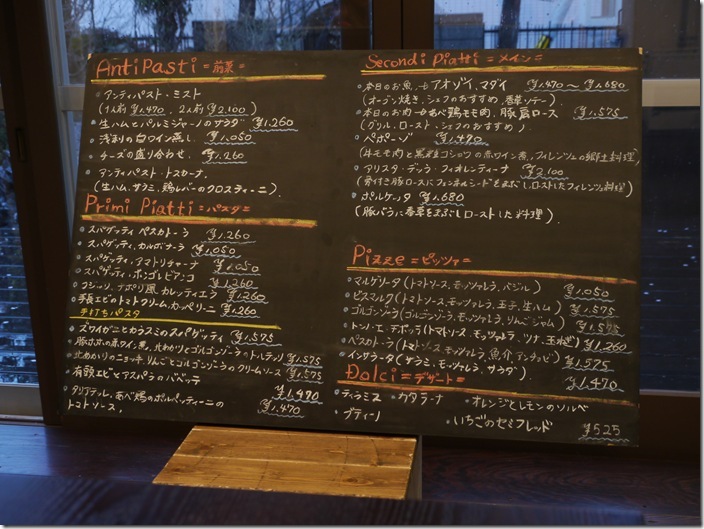 AntiPasti = 前菜 =
アンティパスト・ミスト
(1人前 ¥1,470、2人前 ¥2,100)
生ハムとパルミジャーノのサラダ ¥1,260
浅利の白ワイン蒸し ¥1,050
チーズの盛り合わせ ¥1,260
アンティパスト・トスカーナ
(生ハム、サラミ、鶏レバーのクロスティーニ)
Primi Piatti = パスタ =
スパゲッティ ペスカトーラ ¥1,260
スパゲッティ、カルボナーラ ¥1,050
スパゲッティ、アマトリチャーナ ¥1,050
スパゲッティ、ボンゴレビアンコ ¥1,050
フジッリ、ナポリ風 カレッティエラ ¥1,260
手長エビのトマトクリーム、カッペリーニ ¥1,260
手打ちパスタ
ズワイガニとカラスミのスパゲッティ ¥1,575
豚ホホの赤ワイン煮、北あかりとゴルゴンゾーラのトルテリ ¥1,575
北あかりのニョッキ りんごとゴルゴンゾーラのクリームソース ¥1,575
有頭エビとアスパラの ¥1,470
タリアテッレ、あべ鶏のポルペッティーニの ¥1,470
トマトソース
Secondi Piatti = メイン =
本日のお魚 → アオゾイ、マダイ ¥1,470〜¥1,680
(オーブン焼き、シェフのおすすめ、香草ソテー)
本日のお肉 → あべ鶏モモ肉、豚肩ロース ¥1,575
(グリル、ロースト、シェフのおすすめ)
ペポーゾ ¥1,470
(牛モモ肉と黒粒コショウの赤ワイン煮、フィレンツェの郷土料理)
アリスタ・デッラ・フィオレンティーナ ¥2,100
(骨付き豚ロースにフェンネルシードをまぶしローストしたフィレンツェ料理)
ポルケッタ ¥1,680
(豚バラに香草をまぶしローストした料理)
Pizze = ピッツァ =
マルゲリータ(トマトソース、モッツァレラ、バジル) ¥1,050
ビスマルク(トマトソース、モッツァレラ、玉子、生ハム) ¥1,575
ゴルゴンゾーラ(ゴルゴンゾーラ、モッツァレラ、りんごジャム) ¥1,575
トンノ・エ・チポッラ(トマトソース、モッツァレラ、ツナ、玉ねぎ) ¥1,260
ペスカトーラ(トマトソース、モッツァレラ、魚介、アンチョビ) ¥1,575
インサラータ(サラミ、モッツァレラ、サラダ) ¥1,470
Dolci = デザート =
ティラミス ・カタラーナ ・オレンジとレモンのソルベ
ブディーノ ・いちごのセミフレッド ¥525